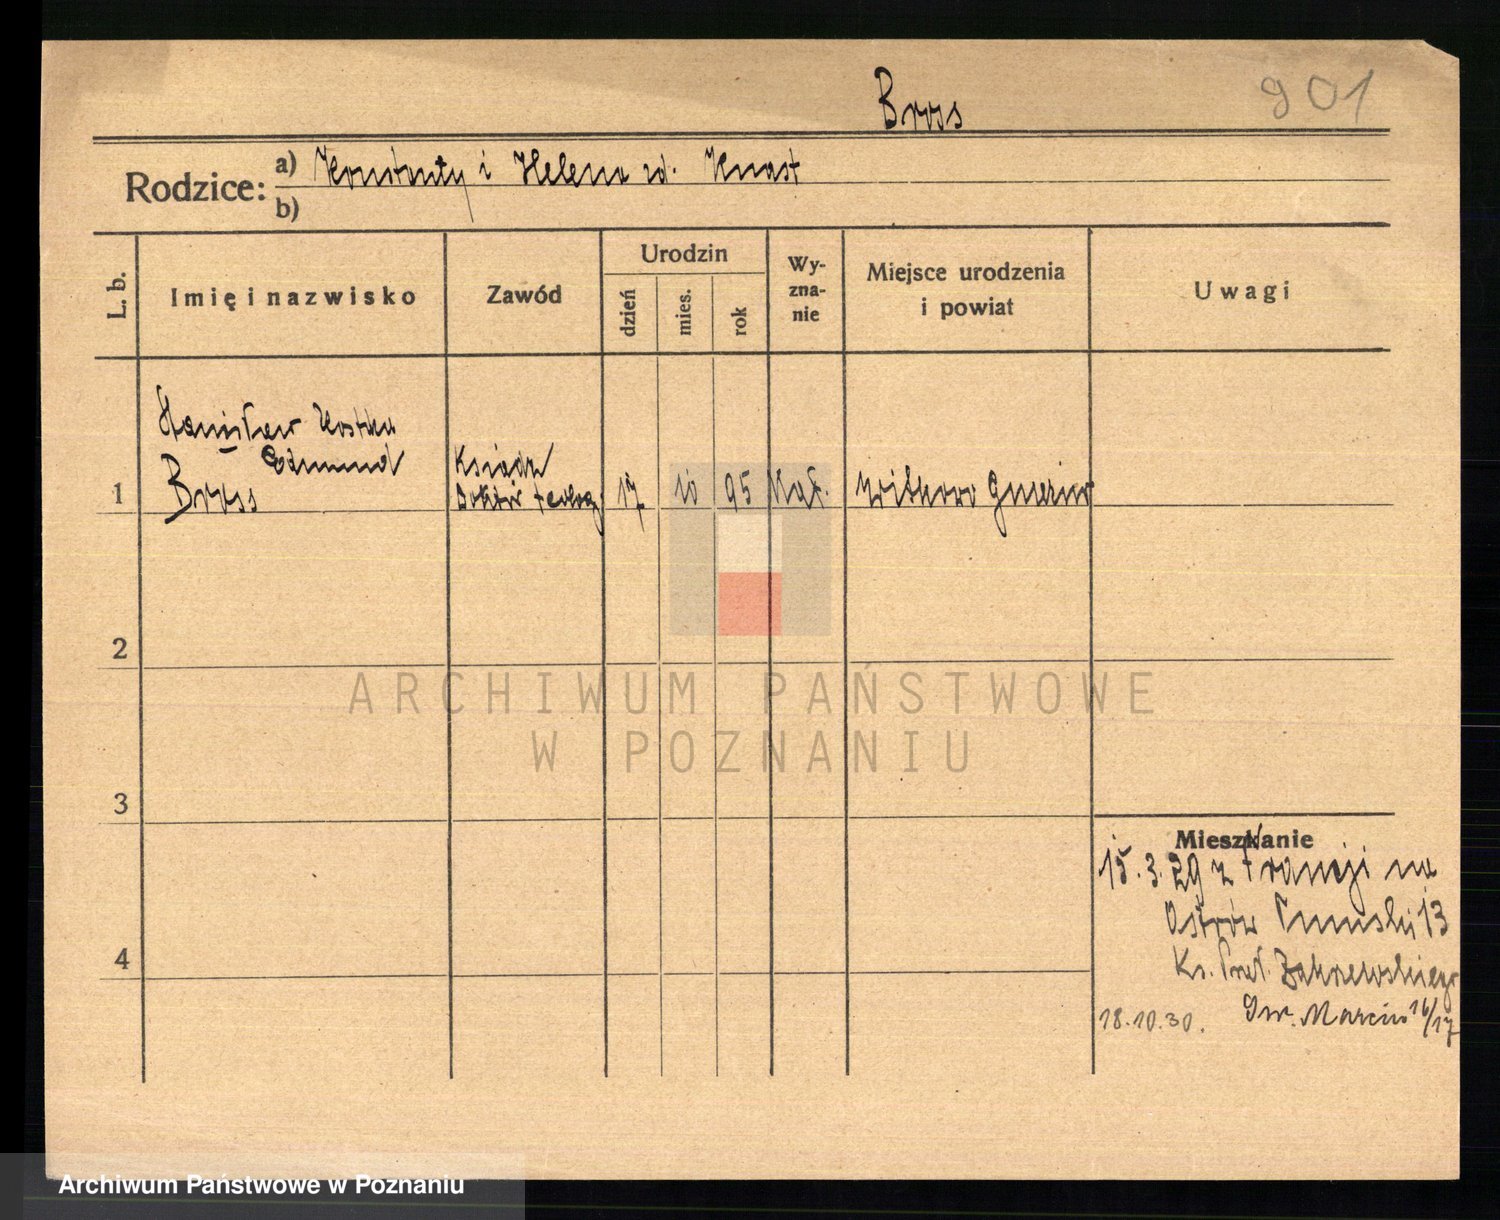 Bross
901
Rodzice: a) Konstanty i Helena zd. Knast
b)
L. b.
Imię i nazwisko
Zawód
Urodzin
dzień
mies.
rok
Wy-
zna-
nie
Miejsce urodzenia
i powiat
Uwagi
Stanisław Kostka
Edmund
1 Bross
Ksiądz
Doktór teolog.
17 10 95 Kat. Witkowo Gniezno
2
ARCHIWUM PAŃSTWOWE
W POZNANIU
3
4
Mieszkanie
15.3.29 z Francji na
Ostrów Tumski 13
Ks. Zakrzewskiego
18.10.30. Św. Marcin 16/17
Archiwum Państwowe w Poznaniu